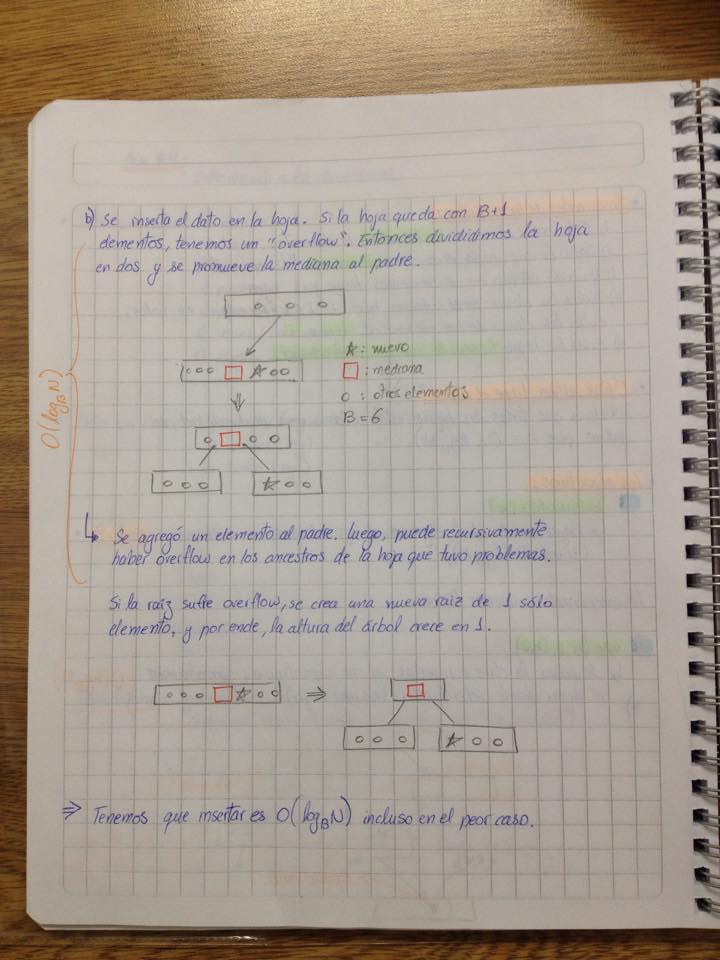 b) Se inserta el dato en la hoja. Si la hoja queda con B+1
elementos, tenemos un "overflow". Entonces dividimos la hoja
en dos y se promueve la mediana al padre.
☆: nuevo
□: mediana
o: otros elementos
B=6
O(log_B N)
↳ Se agregó un elemento al padre. luego, puede recursivamente
haber overflow en los ancestros de la hoja que tuvo problemas.
Si la raíz sufre overflow, se crea una nueva raiz de 1 sólo
elemento, y por ende, la altura del árbol crece en 1.
⇒
⇒ Tenemos que insertar es O(log_B N) incluso en el peor caso.